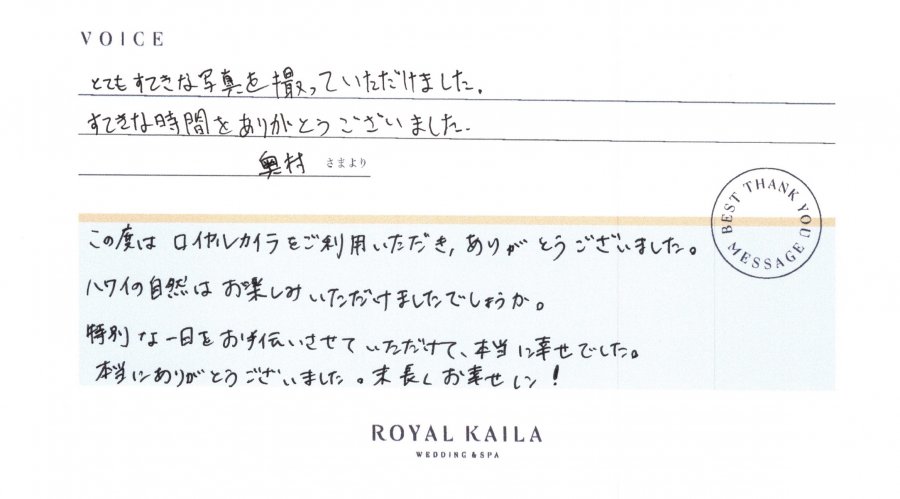 VOICE
とてもすてきな写真を撮っていただけました。
すてきな時間をありがとうございました.
奥村 さまより
BEST THANK YOU MESSAGE
この度は ロイヤルカイラをご利用いただき,ありがとうございました。
ハワイの自然は お楽しみいただけましたでしょうか。
特別な一日をお手伝いさせていただけて、本当に幸せでした。
本当にありがとうございました。末長くお幸せに!
ROYAL KAILA
WEDDING & SPA